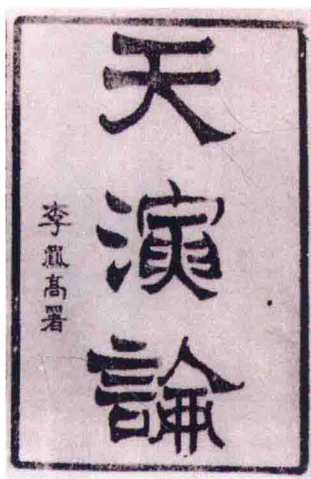 天演論
李鳳高署